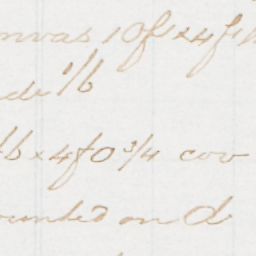 nvas 10f x 4f
de 1/6
6 x 4f0 3/4 cov
ounted on d